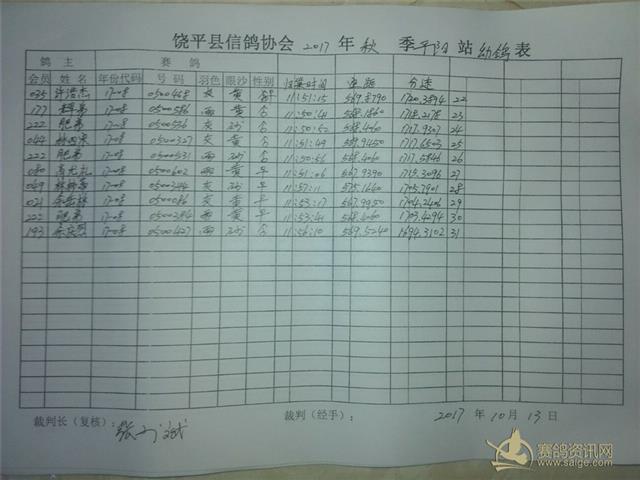 饶平县信鸽协会 2017 年 秋 季 平阳 站 幼鸽 表
鸽 主 赛 鸽
会员 姓 名 年份代码 号 码 羽色 眼沙 性别 归巢时间 空距 分速
035 许浩杰 17-08 0500468 灰 黄 11:51:15 569.8790 1720.3894 22
177 17-08 0500586 雨 黄 11:50:41 568.1860 1718.2178 23
222 肥弟 17-08 0500576 灰 砂 11:50:52 568.4060 1717.9307 24
044 17-08 0500327 雨 11:51:49 569.9450 1717.6503 25
222 肥弟 17-08 0500531 雨 11:50:56 568.4060 1717.5846 26
080 17-08 0500602 雨 黄 11:51:06 567.9390 1715.3096 27
069 17-08 灰 黄 11:57:11 575.1660 1705.7901 28
021 17-08 0500086 灰 黄 11:53:17 567.9950 1704.2406 29
222 肥弟 17-08 0500284 雨 黄 11:53:41 568.4060 1703.4294 30
193 17-08 0500427 雨 砂 11:56:10 569.5240 1694.3102 31
裁判长（复核）： 裁判（经手）： 2017 年 10 月 13 日
赛鸽资讯网
www.saige.com